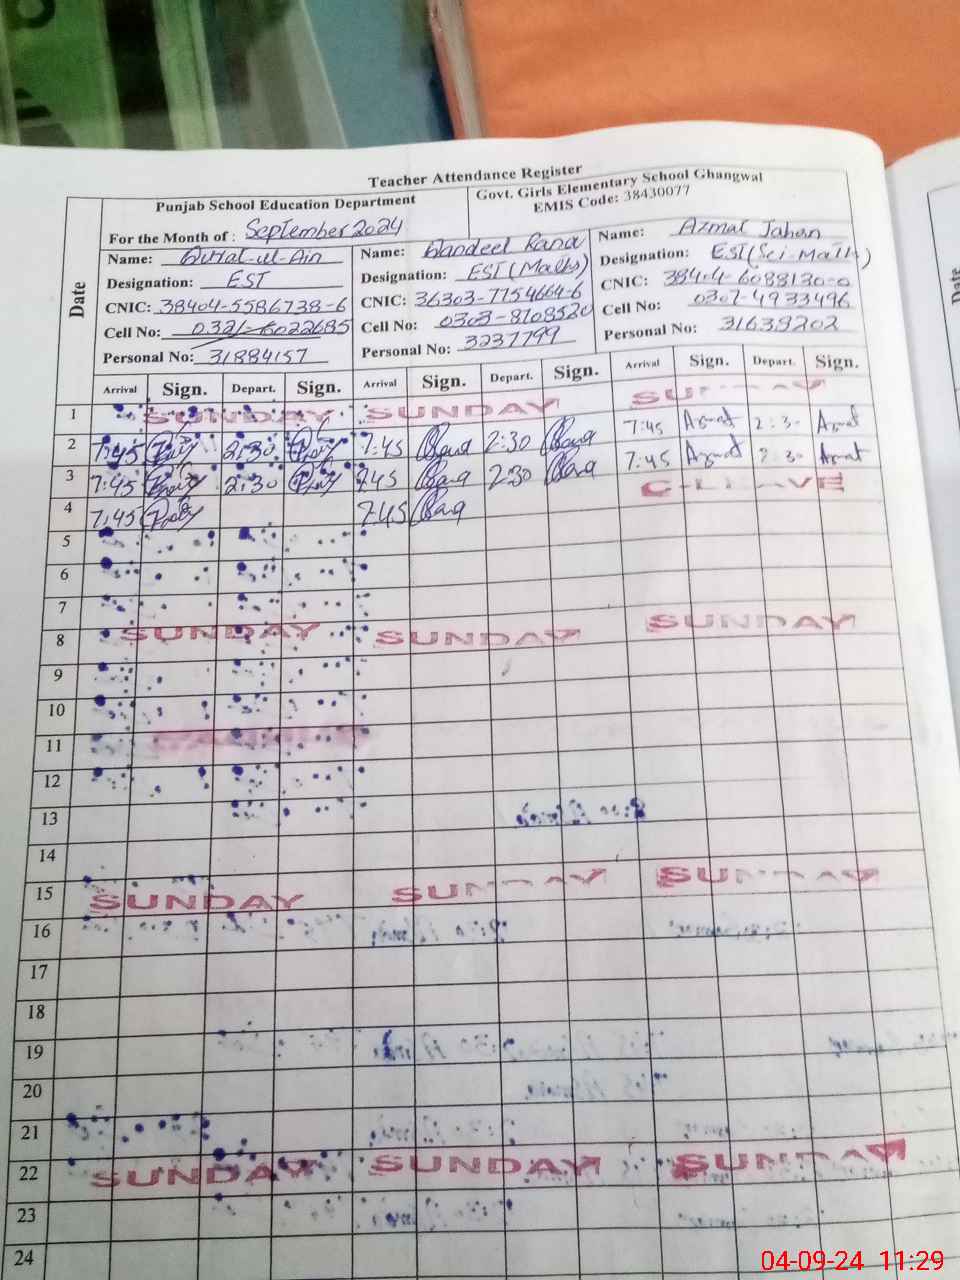 Teacher Attendance Register
Punjab School Education Department
Govt. Girls Elementary School Ghangwal
EMIS Code: 38430077
For the Month of : September 2024
Date
Name: Qurat-ul-Ain
Designation: EST
CNIC: 38404-5586738-6
Cell No: 0321-6022685
Personal No: 31884157
Name: Qandeel Rana
Designation: EST (Maths)
CNIC: 36303-7754664-6
Cell No: 0303-8708520
Personal No: 3237799
Name: Azmat Jahan
Designation: EST (Sci-Math)
CNIC: 38404-6088130-0
Cell No: 0307-4933496
Personal No: 31639202
Arrival Sign. Depart. Sign. Arrival Sign. Depart. Sign. Arrival Sign. Depart. Sign.
1 SUNDAY SUNDAY SUNDAY
2 7:45 2:30 7:45 Rana 2:30 Rana 7:45 Azmat 2:30 Azmat
3 7:45 2:30 7:45 Rana 2:30 Rana 7:45 Azmat 2:30 Azmat
4 7:45 7:45 Rana C-LEAVE
5
6
7
8 SUNDAY SUNDAY SUNDAY
9
10
11
12
13
14
15 SUNDAY SUNDAY SUNDAY
16
17
18
19
20
21
22 SUNDAY SUNDAY SUNDAY
23
24
04-09-24 11:29